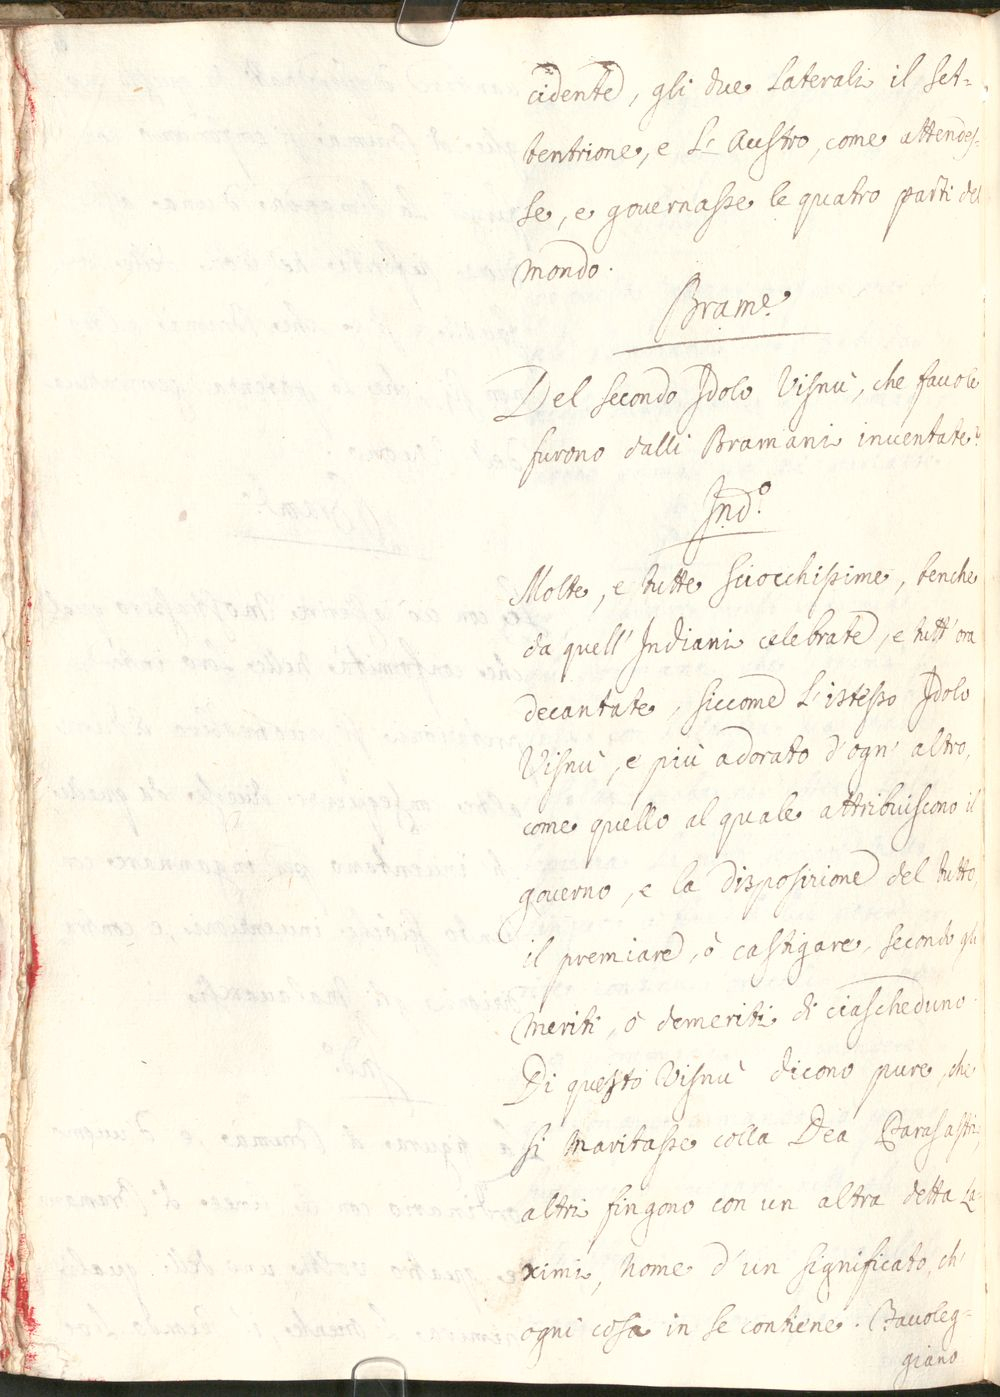 cidente, gli due Laterali il Set=
tentrione, e L'Austro, come attendes=
se, e governasse le quatro parti del
mondo.
Brame.
Del secondo Idolo Visnù, che favole
furono dalli Bramani inventate?
Ind.º
Molte, e tutte sciocchissime, benche
da quell' Indiani celebrate, e tutt'ora
decantate, siccome L'istesso Idolo
Visnù, e più adorato d'ogn' altro,
come quello al quale attribuiscono il
governo, e la disposizione del tutto,
il premiare, ò castigare, secondo gli
meriti, ò demeriti di ciascheduno.
Di questo Visnù dicono pure, che
si maritasse colla Dea Parasastri,
altri fingono con un altra detta La=
ximi, nome d'un significato, ch'
ogni cosa in se contiene. Favoleg=
giano